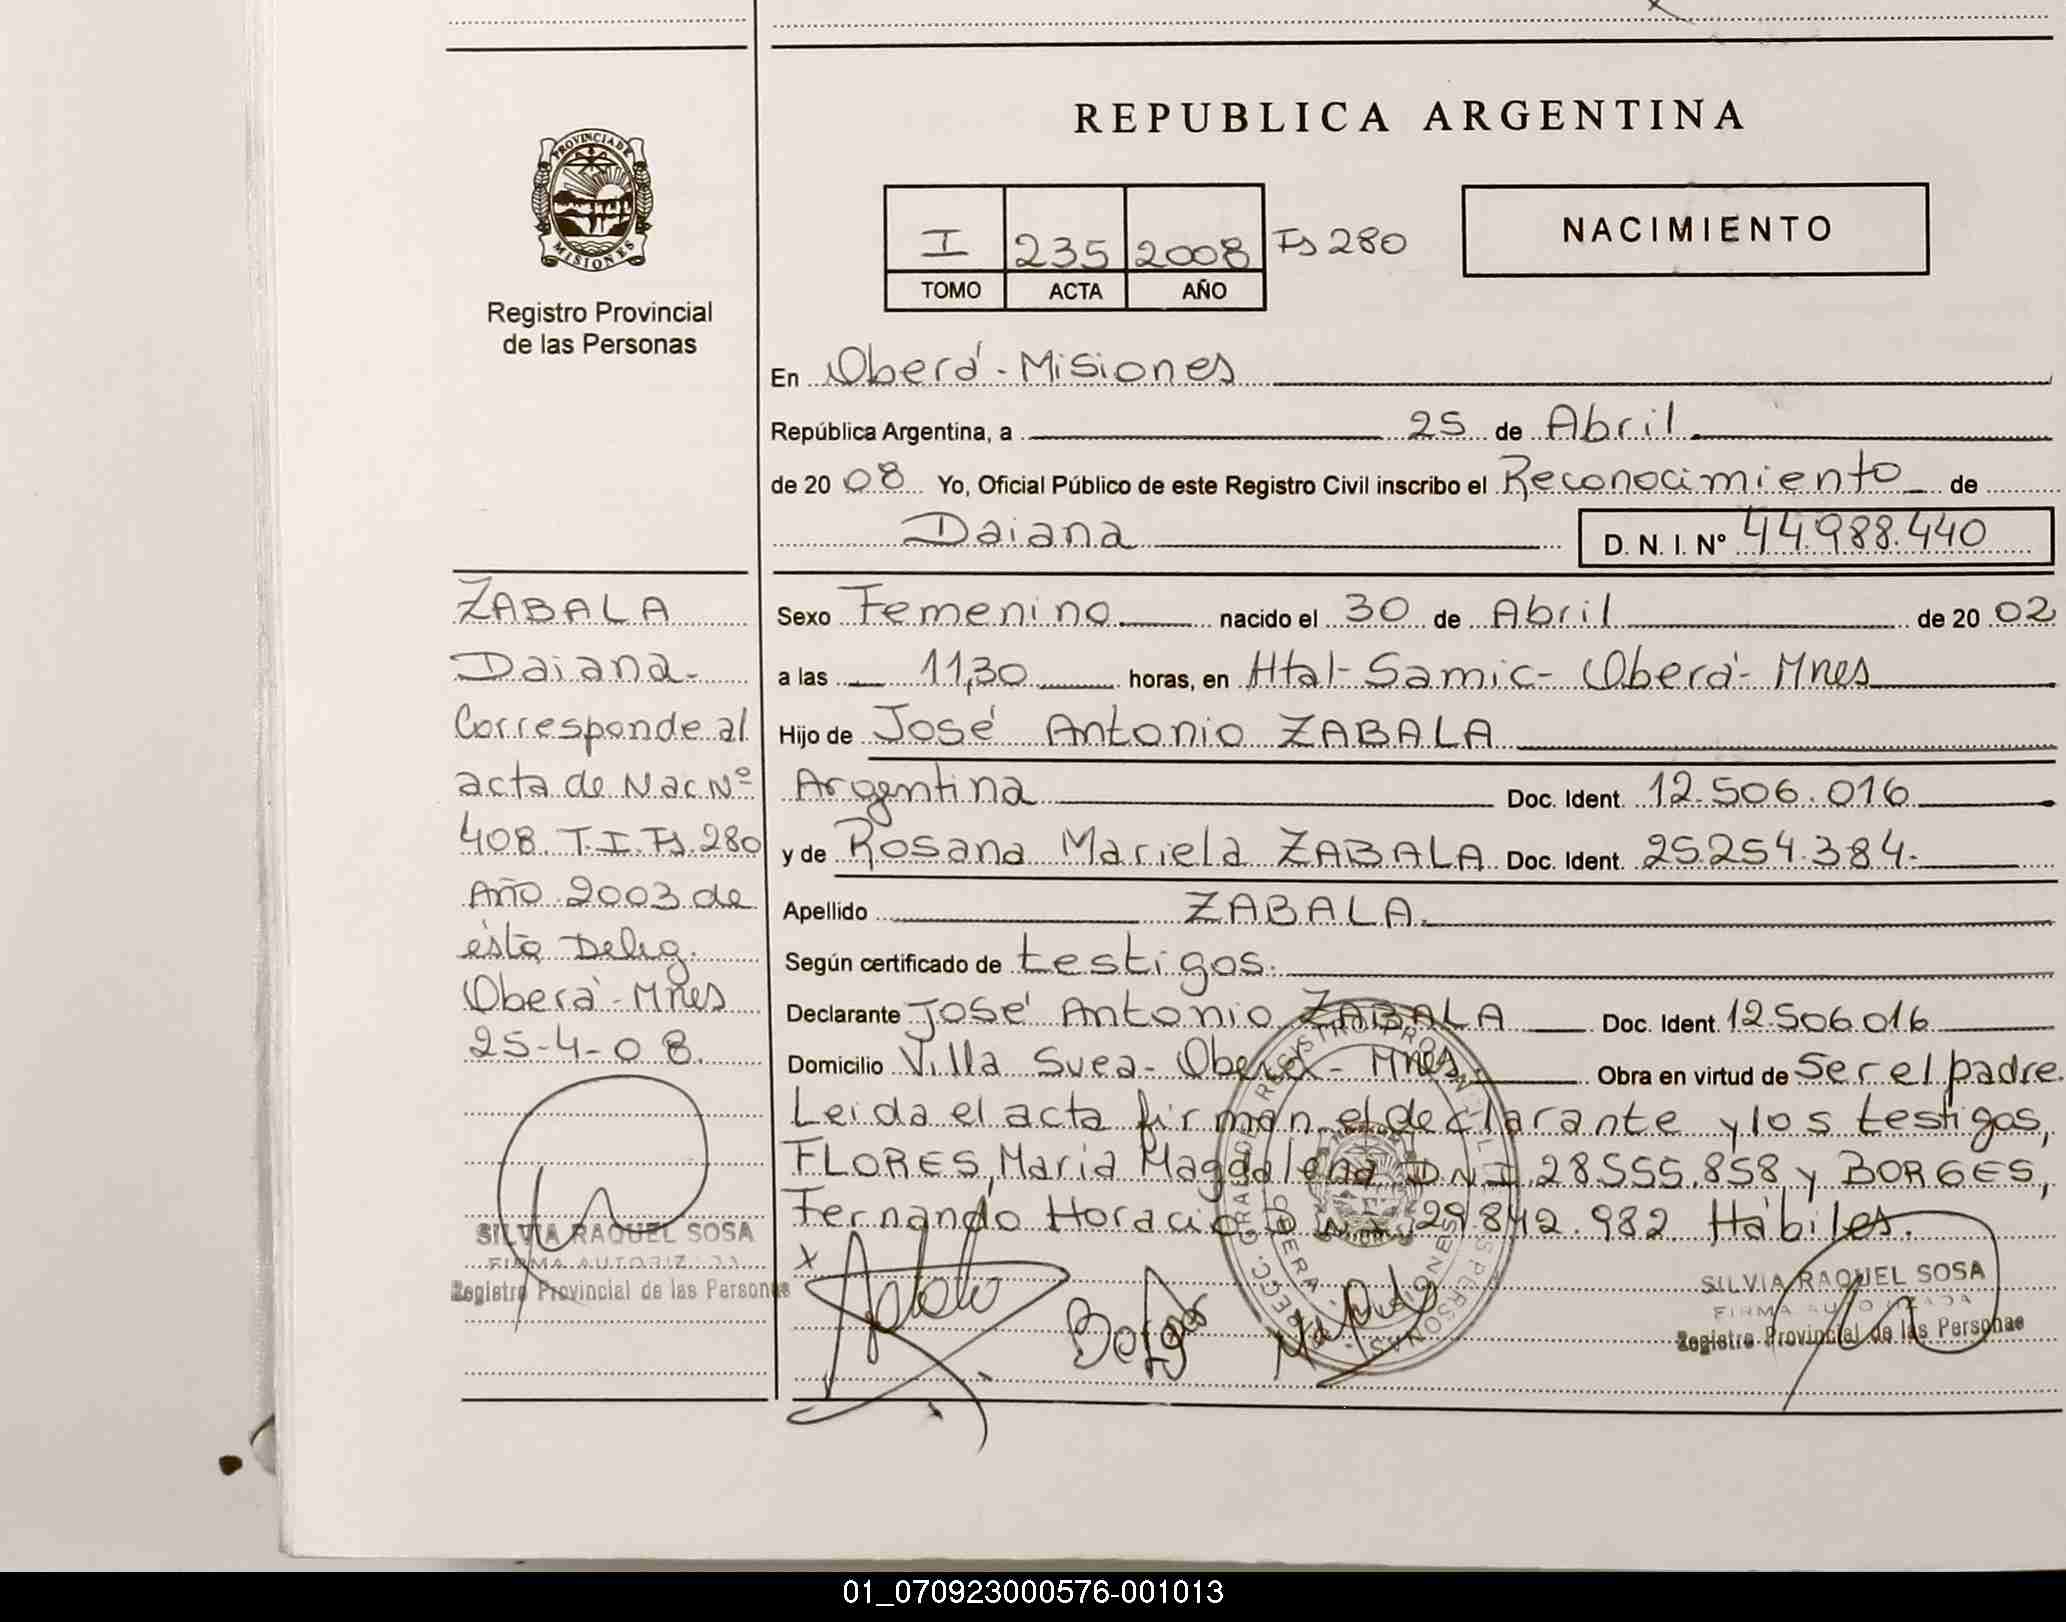 REPUBLICA ARGENTINA
PROVINCIA DE MISIONES
Registro Provincial
de las Personas
I 235 2008 Fs 280
TOMO ACTA AÑO
NACIMIENTO
En Oberá - Misiones
República Argentina, a 25 de Abril
de 20 08 Yo, Oficial Público de este Registro Civil inscribo el Reconocimiento de
Daiana D. N. I. Nº 44.988.440
Sexo Femenino nacido el 30 de Abril de 20 02
a las 11,30 horas, en Htal - Samic - Oberá - Mnes
Hijo de José Antonio ZABALA
Argentina Doc. Ident. 12.506.016
y de Rosana Mariela ZABALA Doc. Ident. 25.254.384.
Apellido ZABALA.
Según certificado de testigos.
Declarante José Antonio ZABALA Doc. Ident. 12.506.016
Domicilio Villa Svea - Oberá - Mnes. Obra en virtud de Ser el padre.
Leida el acta firman el declarante y los testigos,
FLORES, Maria Magdalena D.N.I. 28.555.858 y BORGES,
Fernando Horacio D.N.I. 29.842.982. Hábiles.
SILVIA RAQUEL SOSA
FIRMA AUTORIZADA
Registro Provincial de las Personas
ZABALA
Daiana -
Corresponde al
acta de Nac Nº
408. T. I. Fs. 280
Año 2003 de
ésta Deleg.
Oberá - Mnes
25-4-08.
SILVIA RAQUEL SOSA
FIRMA AUTORIZADA
Registro Provincial de las Personas
01_070923000576-001013